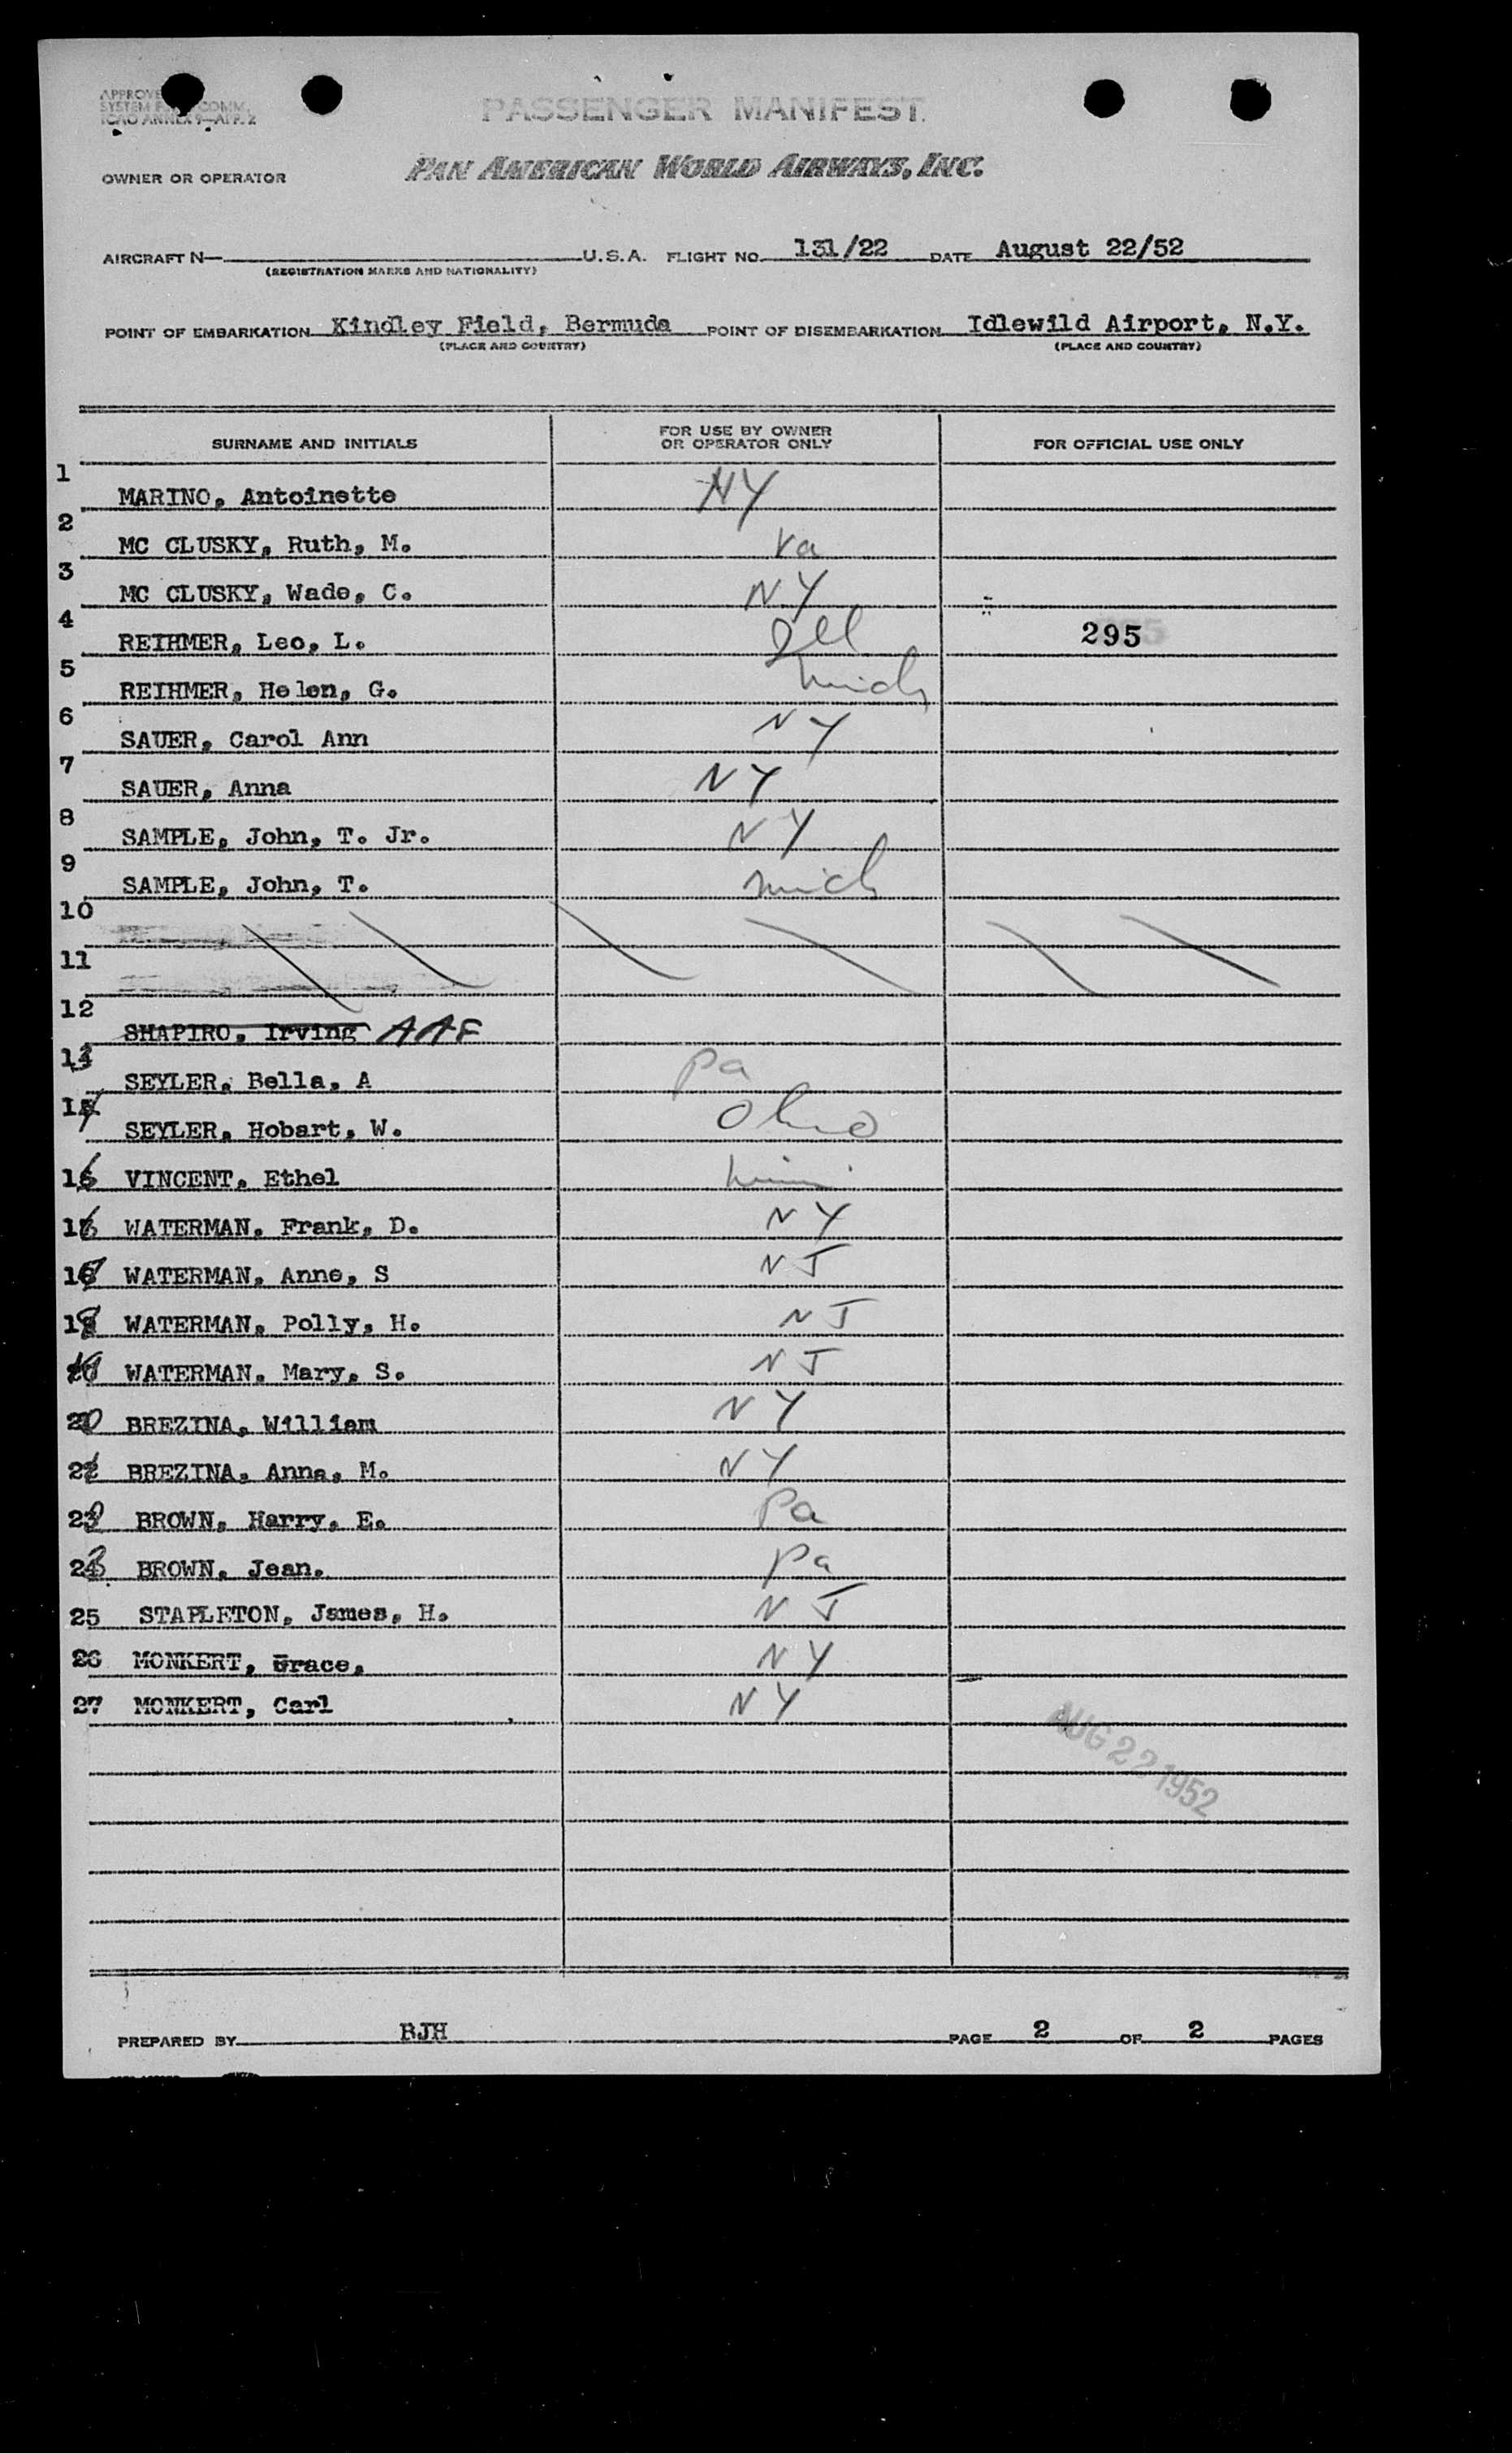 PASSENGER MANIFEST
OWNER OR OPERATOR PAN AMERICAN WORLD AIRWAYS, INC.
AIRCRAFT N— U.S.A. FLIGHT NO. 131/22 DATE August 22/52
(REGISTRATION MARKS AND NATIONALITY)
POINT OF EMBARKATION Kindley Field, Bermuda POINT OF DISEMBARKATION Idlewild Airport, N.Y.
(PLACE AND COUNTRY) (PLACE AND COUNTRY)
SURNAME AND INITIALS FOR USE BY OWNER OR OPERATOR ONLY FOR OFFICIAL USE ONLY
1 MARINO, Antoinette NY
2 MC CLUSKY, Ruth, M. Va
3 MC CLUSKY, Wade, C. NY
4 REIHMER, Leo, L. Ill 295
5 REIHMER, Helen, G. Mich
6 SAUER, Carol Ann NY
7 SAUER, Anna NY
8 SAMPLE, John, T. Jr. NY
9 SAMPLE, John, T. Mich
10
11
12 SHAPIRO, Irving AAF
13 SEYLER, Bella, A Pa
14 SEYLER, Hobart, W. Ohio
15 VINCENT, Ethel
16 WATERMAN, Frank, D. NY
17 WATERMAN, Anne, S NJ
18 WATERMAN, Polly, H. NJ
19 WATERMAN, Mary, S. NJ
20 BREZINA, William NY
21 BREZINA, Anna, M. NY
22 BROWN, Harry, E. Pa
23 BROWN, Jean. Pa
25 STAPLETON, James, H. NJ
26 MONKERT, Grace, NY
27 MONKERT, Carl NY
AUG 22 1952
PREPARED BY RJH PAGE 2 OF 2 PAGES